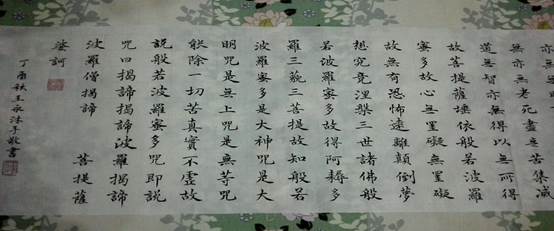 亦無老死盡無苦集滅
道無智亦無得以無所得
故菩提薩埵依般若波羅
蜜多故心無罣礙無罣礙
故無有恐怖遠離顛倒夢
想究竟涅槃三世諸佛般
若波羅蜜多故得阿耨多
羅三藐三菩提故知般若
波羅蜜多是大神咒是大
明咒是無上咒是無等咒
能除一切苦真實不虛故
說般若波羅蜜多咒即說
咒曰揭諦揭諦波羅揭諦
波羅僧揭諦 菩提薩
婆訶
丁酉秋王永沐手敬書